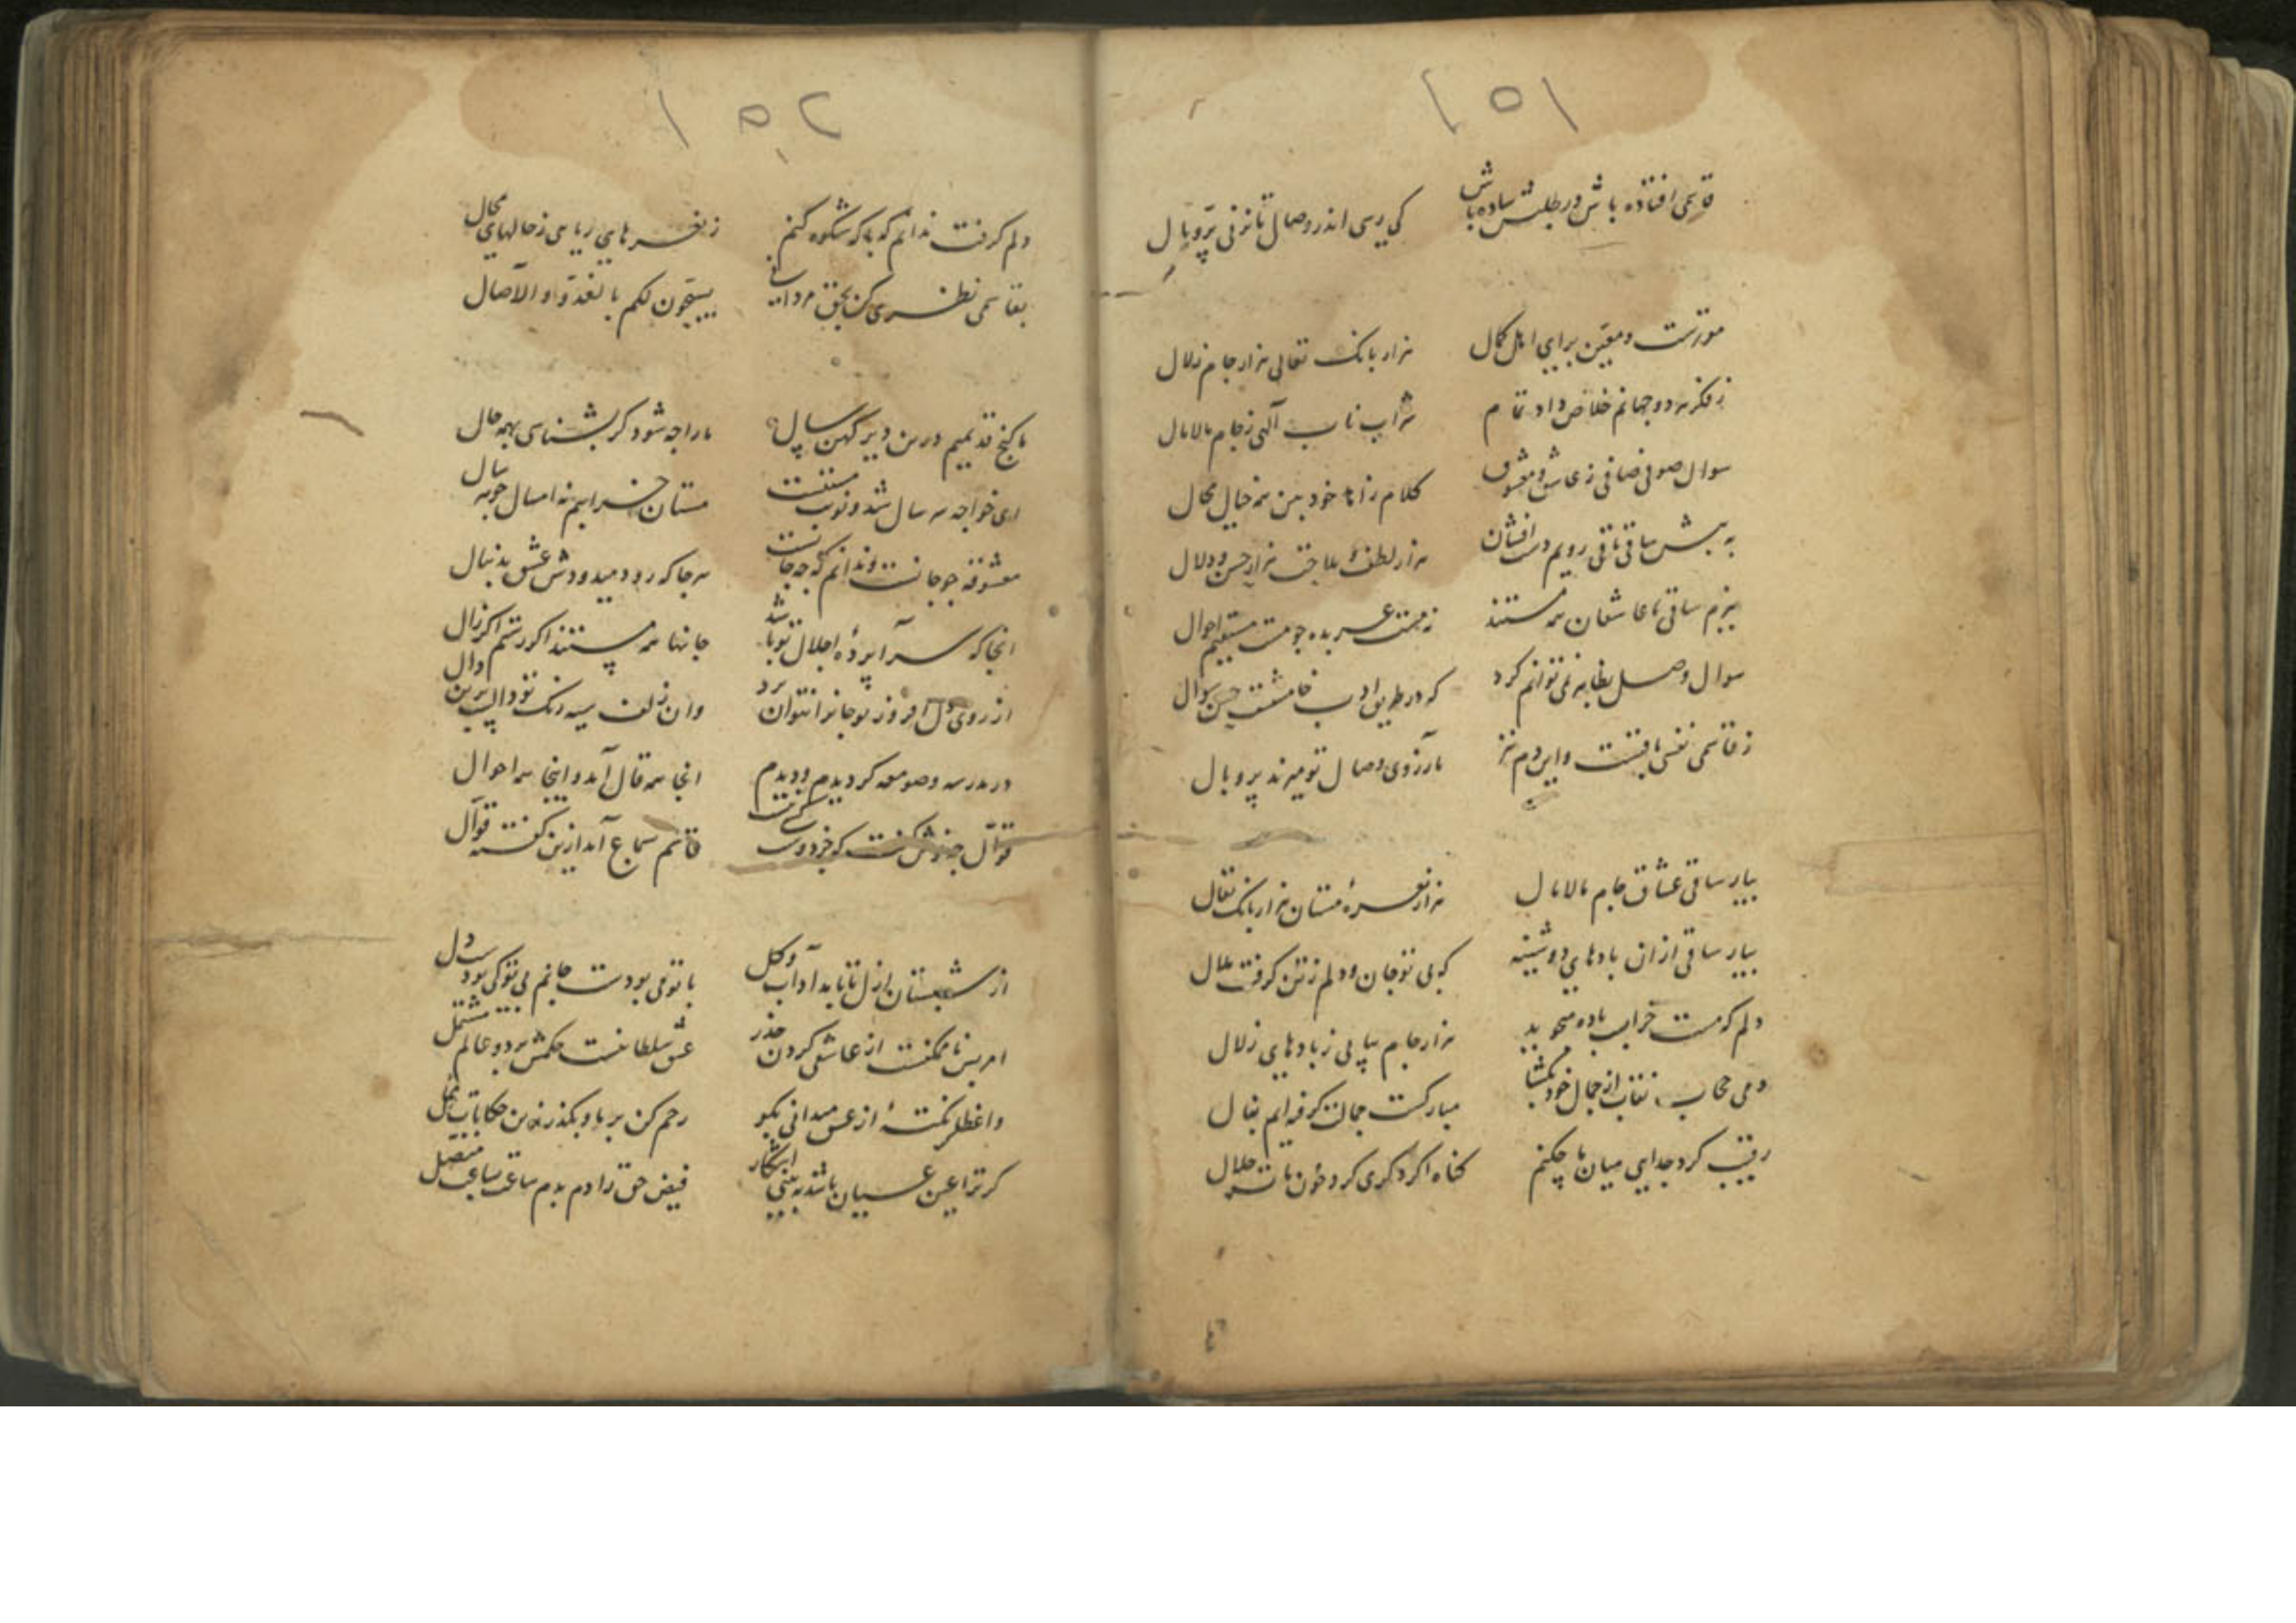 ١٥١
قاسمی افتاده باش و در طلبش ساده باش
کی رسی اندر وصال تا نزنی پرّ و بال
مقررست و معین برای اهل کمال
هزار بانک تعالی هزار جام زلال
ز فکر هر دو جهانم خلاص داد تمام
شراب ناب الهی ز جام مالامال
سوال صوفی صافی ز عاشق و معشوق
کلام زاهد خودبین همه خیال محال
به پیش ساقی باقی رویم دست افشان
هزار لطف و ملاحت هزار حسن و دلال
ببزم ساقی ما عاشقان همه مستند
ز مست عربده جو مست مستقیم احوال
سوال وصل بظاهر نمی توانم کرد
که در طریق ادب خامشیست حسن سوال
ز قاسمی نفسی باقیست و این دم نیز
بآرزوی وصال تو میزند پر و بال
بیار ساقی عشاق جام مالامال
هزار نعره مستان هزار بانک تعال
بیار ساقی از ان بادهای دوشینه
که بی تو جان و دلم ز تن گرفت ملال
دلم که مست خرابست باده میجوید
هزار جام پیاپی ز بادهای زلال
دمی حجاب نقاب از جمال خود بکشا
مبارکست جمالت گرفته ایم بفال
رقیب کرد جدایی میان ما چکنم
گناه اگر دگری کرد خون ماست حلال
١٥٢
دلم گرفت ندانم که با که شکوه کنم
بقاسمی نظری کن بحق مردانی
یسبحون لکم بالغدوّ و الآصال
ما گنج قدیمیم درین دیر کهن سال
ما را چه شود گر بشناسی بهمه حال
ای خواجه سه سال شد و نوبت مستیست
مستان خرابیم نه امسال چو هر سال
معشوقه چو جانست و ندانم که چه جانست
هر جا که رود میدودش عشق بدنبال
انجا که سراپرده اجلال تو باشد
جانها همه پستند اگر رستم اگر زال
از روی دل افروز تو جان را نتوان برد
وان زلف سیه رنگ تو دالیست برین دال
در مدرسه و صومعه گردیدم و دیدم
انجا همه قال آمد و اینجا همه احوال
قوّال چه خوش گفت که خرد سرمست
قاسم بسماع آمد ازین گفته قوّال
از شبستان ازل تا بابد آداب و گل
با تو می بودست جانم بی تو کی بودست دل
امر بس ناممکنست از عاشقی کردن حذر
عشق سلطانیست حکمش بر دو عالم مشتمل
واعظا گر نکته از عشق میدانی بگو
رحم کن بر ما و بگذر زین حکایات ممل
گر ترا عین عیان باشد به بینی آشکار
فیض حق را دم بدم ساعت بساعت متصل